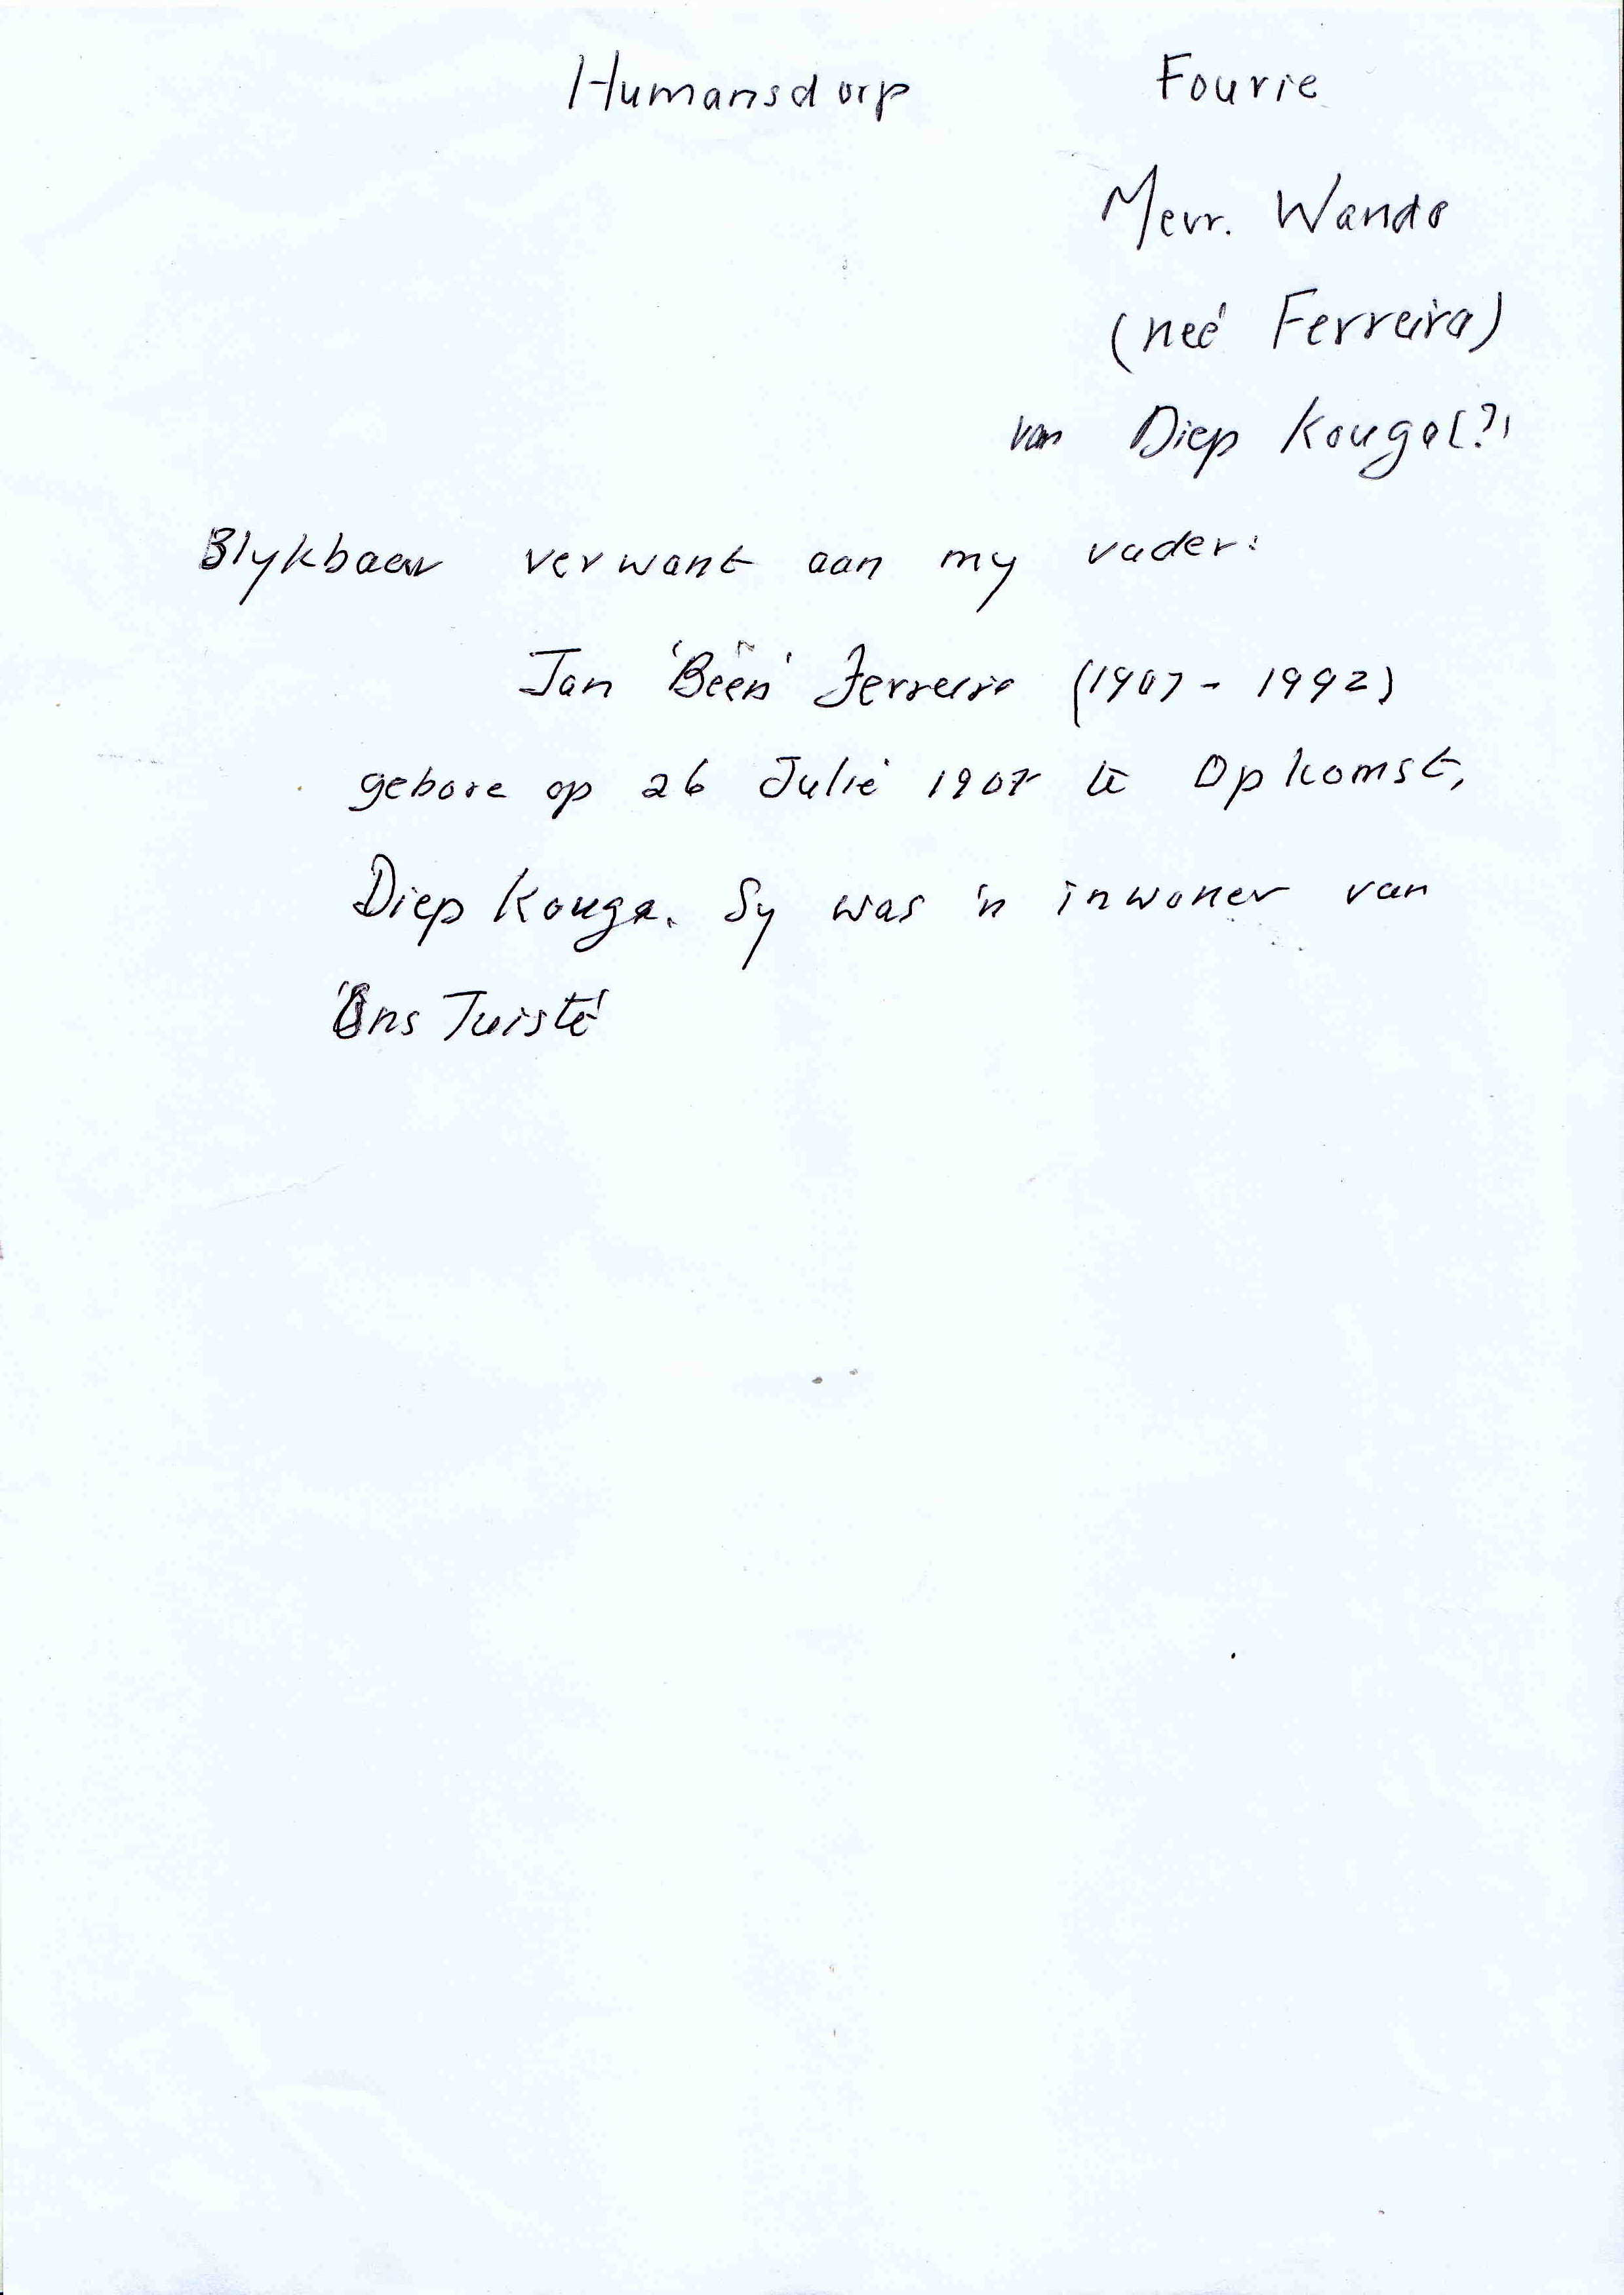 Humansdorp Fourie
Mevr. Wanda
(neé Ferreira)
van Diep Kouga(?)
Blykbaar verwant aan my vader:
Jan 'Been' Ferreira (1907 - 1992)
gebore op 26 Julie 1907 te Opkomst,
Diep Kouga. Sy was 'n inwoner van
'Ons Tuiste'